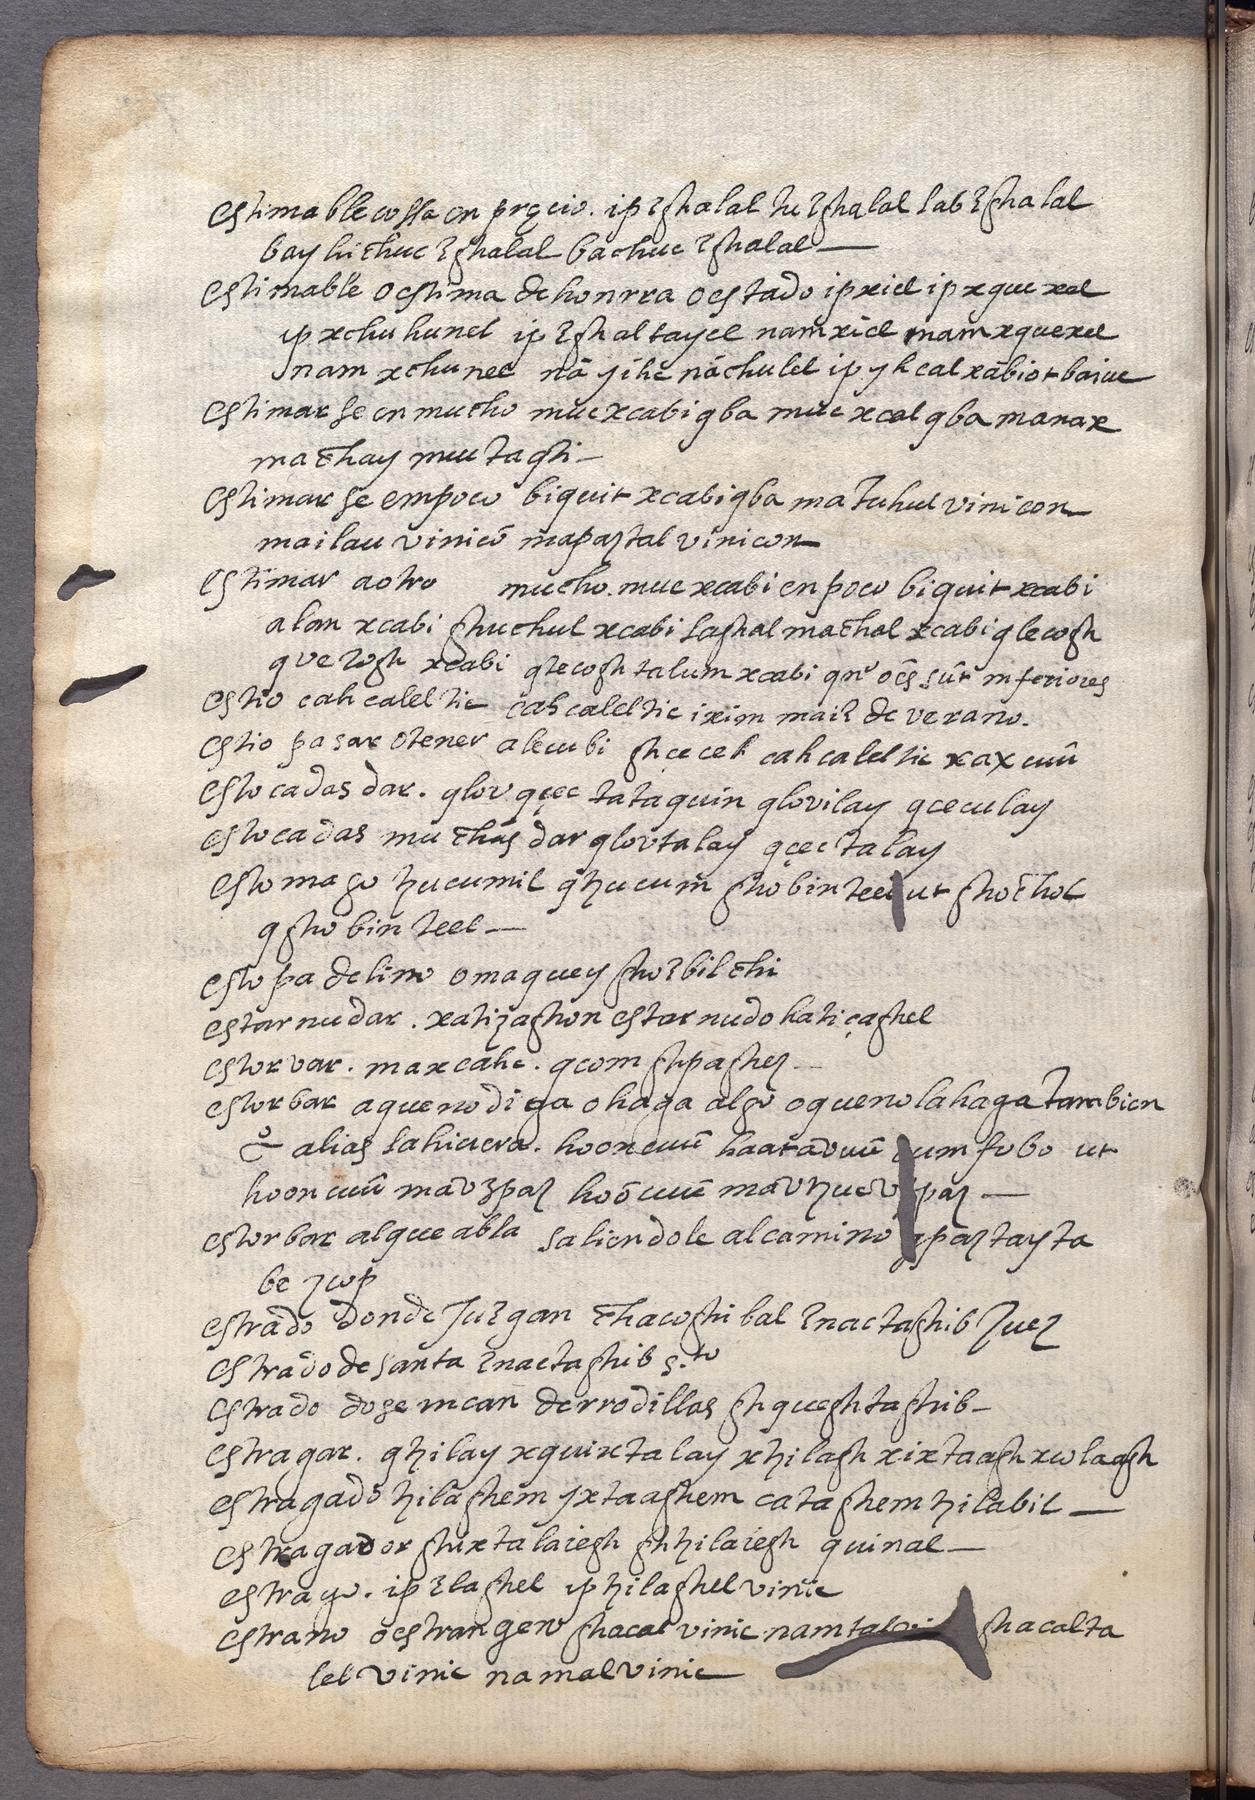 estimable cossa en preçio. ip ꜫghalal tu ꜫghalal lab ꜫghalal
bay hichuc ꜫghalal bachuc ꜫghalal
estimable o estima de honrra o estado ipxiel ipxquexel
ipxchuhunel ip ꜫghaltayel namxiel namxquexel
nam xchunel nā yihc nāchulel ip yhcalxābiot baiuc
estimarse en mucho muc xcabi qba muc xcal qba manax
machay muctaghi
estimarse empoco biquit xcabi qba ma tuhul vinicon
mailau vinicō mapaztal vinicon
estimar aotro mucho. muc xcabi en poco biquit xcabi
alan xcabi ghuchul xcabi laghal machal xcabi qlecogh
xcabi qlecogh talum xcabi qnº oēs sūt inferiores
estio cahcaleltic cahcaleltic ixim maiz de verano.
estio pasar o tener alecubi ghcecel cahcaleltic xaxcuū
estocadas dar. qlov qçec tataquin qlovilay qceculay
estocadas muchas dar qlovtalay qçectalay
estomago tzucumil qtzucum ghobinteel ut ghochol
qghobinteel
estopa de lino o maguey ghoꜫbilchi
estarnudar. xatizaghon estarnudo hatiçaghel
estorvar. maxcahc. qcom ghpaghez
estorbar aquenodiga o haga algo o que no la haga tambien
alias la hiciera. hooncuū haatavuū cum fubo ut
hooncuū mavꜫpaz hoōcuū mavtzucv paz
estorbar alque abla saliendole alcamino qpaztayta
be zcop
estrado donde Juzgan chacoghibal ꜫnactaghib Juez
estrado de santa ꜫnactaghib s.to
estrado dose incan de rrodillas ghqueghtaghib
estragar. qtzilay xquixtalay xtzilagh xixtaagh xcolaagh
estragado tzilaghem yxtaaghem cataghem tzilabil
estragador ghixtalaiegh ghtzilaiegh quinal
estrago. ip ꜫlaghel ip tzilaghel vinic
estraño o estrangero ghacal vinic namtal ghacalta
lel vinic namalvinic